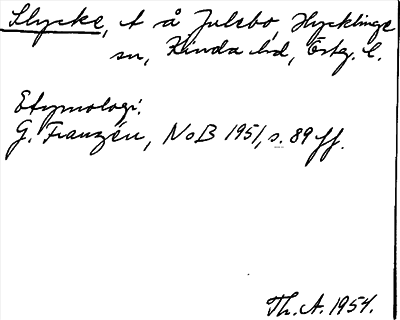 Slycke, t å Julsbo, Hycklinge
sn, Kinda hd, Östg. l.
Etymologi:
G. Franzén, NoB 1951, s. 89 ff.
Th. A. 1954.